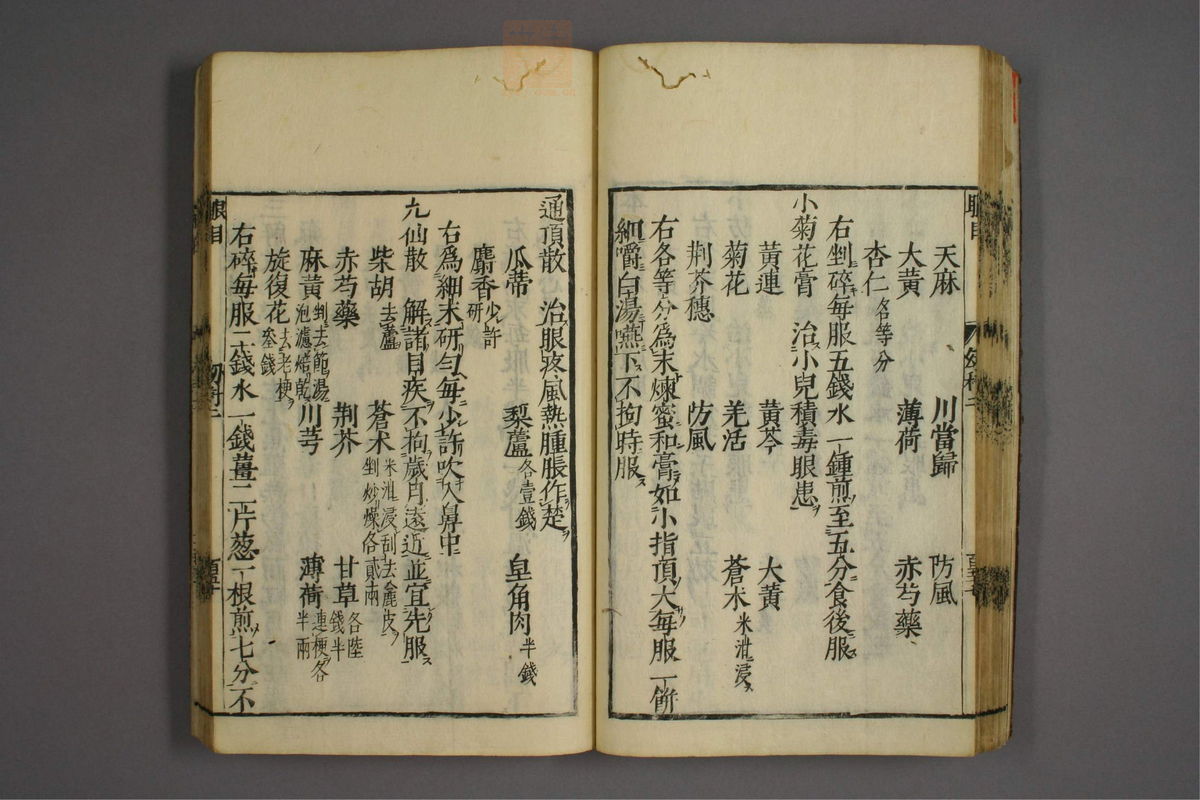 天麻 川當歸 防風
大黃 薄荷 赤芍藥
杏仁各等分
右剉碎每服五錢水一鍾煎至五分食後服
小菊花膏 治小兒積毒眼患
黃連 黃芩 大黃
菊花 羌活 蒼朮米泔浸
荆芥穗 防風
右各等分爲末煉蜜和膏如小指頂大每服一餅
細嚼白湯嚥下不拘時服
通頂散 治眼疼風熱腫脹作楚
瓜蒂 藜蘆各壹錢 皂角肉半錢
麝香少許研
右爲細末研勻每少許吹入鼻中
九仙散 解諸目疾不拘歲月遠近並宜先服
柴胡去蘆 蒼朮米泔浸刮去麄皮剉炒燥各貳兩
赤芍藥 荆芥 甘草各陸錢半
麻黃剉去節湯泡濾焙乾 川芎 薄荷連梗各半兩
旋復花去老梗叄錢
右碎每服二錢水一錢薑二片葱一根煎七分不
眼目